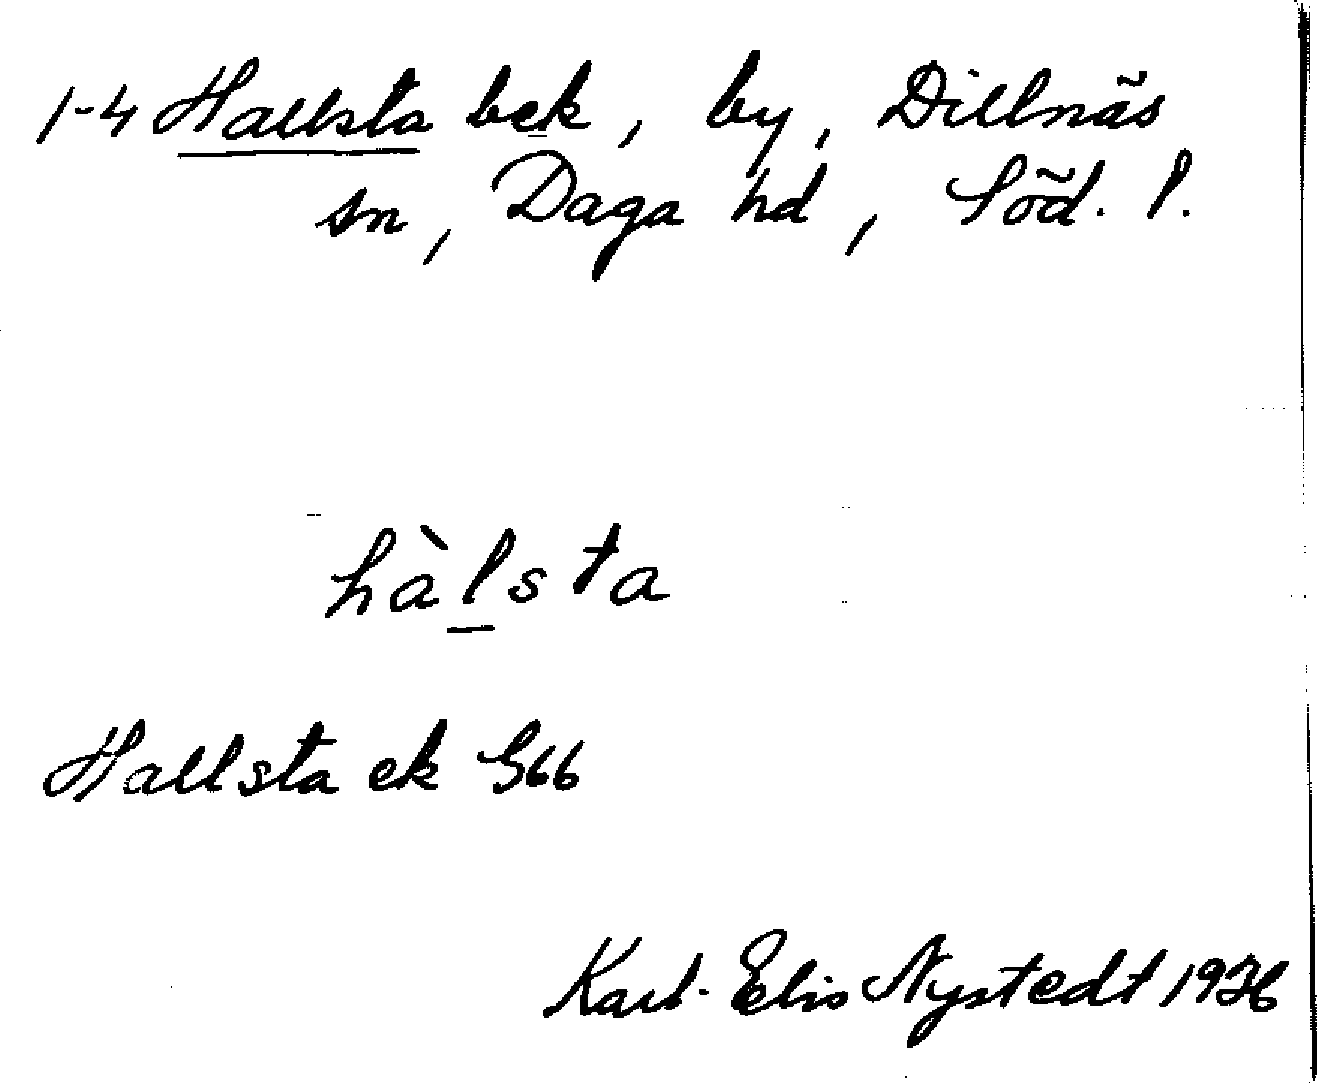 1-4 Hallsta bek, by, Dillnäs
sn, Daga hd, Söd. l.
hàlsta
Hallsta ek G66
Karl-Elis Nystedt 1936